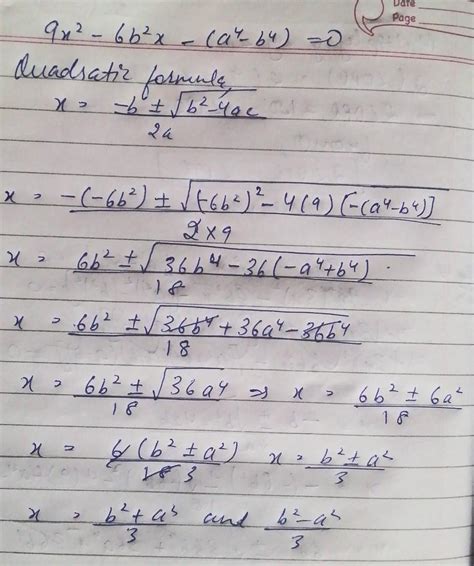 Date
Page
9x² - 6b²x - (a⁴-b⁴) = 0
Quadratic formula
x = -b ± √b²-4ac / 2a
x = -(-6b²) ± √(-6b²)² - 4(9)[-(a⁴-b⁴)] / 2×9
x = 6b² ± √36b⁴-36(-a⁴+b⁴) / 18
x = 6b² ± √36b⁴+36a⁴-36b⁴ / 18
x = 6b² ± √36a⁴ / 18 ⇒ x = 6b² ± 6a² / 18
x = 6(b² ± a²) / 18 3 x = b² ± a² / 3
x = b²+a² / 3 and b²-a² / 3